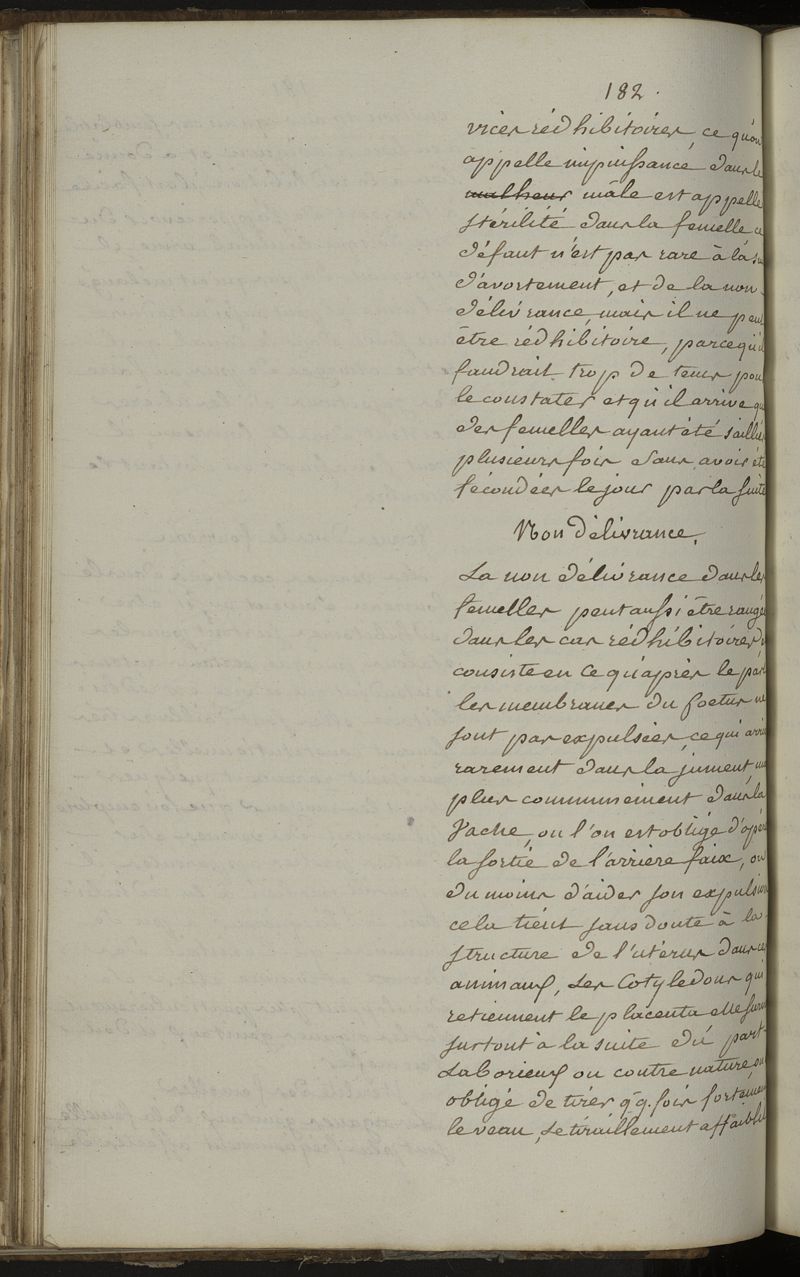 182.
vices rédhibitoires, ce qu'on
appelle impuissance dans le
malheur mâle est appellé
stérilité dans la femelle ce
défaut n'est pas rare à la
d'avortement, et de la non
délivrance, mais il ne peut
être rédhibitoire, parcequ'il
faudrait trop de tems pour
le constater et qu'il arrive que
des femelles ayant été saillies
plusieurs fois sans avoir été
fécondées le jour par la suite
Non délivrance.
La non délivrance dans les
femelles peut aussi être rangée
dans les cas rédhibitoires
consiste en ce qu'après le part
les membranes du foetus ne
sont pas expulsées, ce qui arrive
rarement dans la jument,
plus communément dans la
Vache, ou l'on est obligé d'opérer
la sortie de l'arrière faix, ou
du moins d'aider son expulsion
cela tient sans doute à la
structure de l'utérus dans ces
animaux, les Cotyledons qui
retiennent le placenta
surtout à la suite du part
Laborieux ou contre nature, on
obligé de tirer q.q. fois fortement
le veau, le tiraillement affaiblit